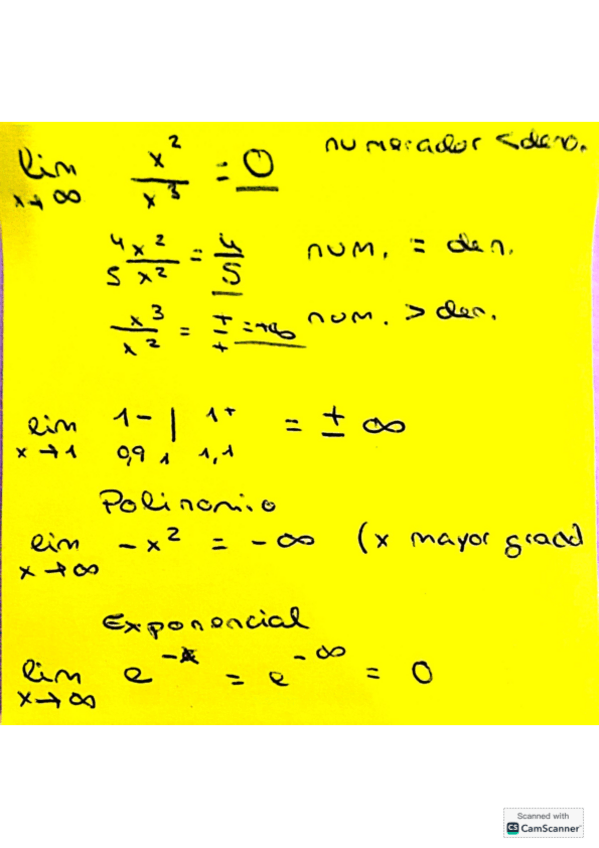 lim x→∞ x²/x³ = 0 numerador < deno.
4x²/5x² = 4/5 num. = den.
x³/x² = +/+ = +∞ num. > den.
lim x→1 1- | 1+ = ± ∞
0,9 1 1,1
Polinomio
lim x→∞ -x² = -∞ (x mayor grad
Exponencial
lim x→∞ e^-x = e^-∞ = 0
Scanned with
CS CamScanner